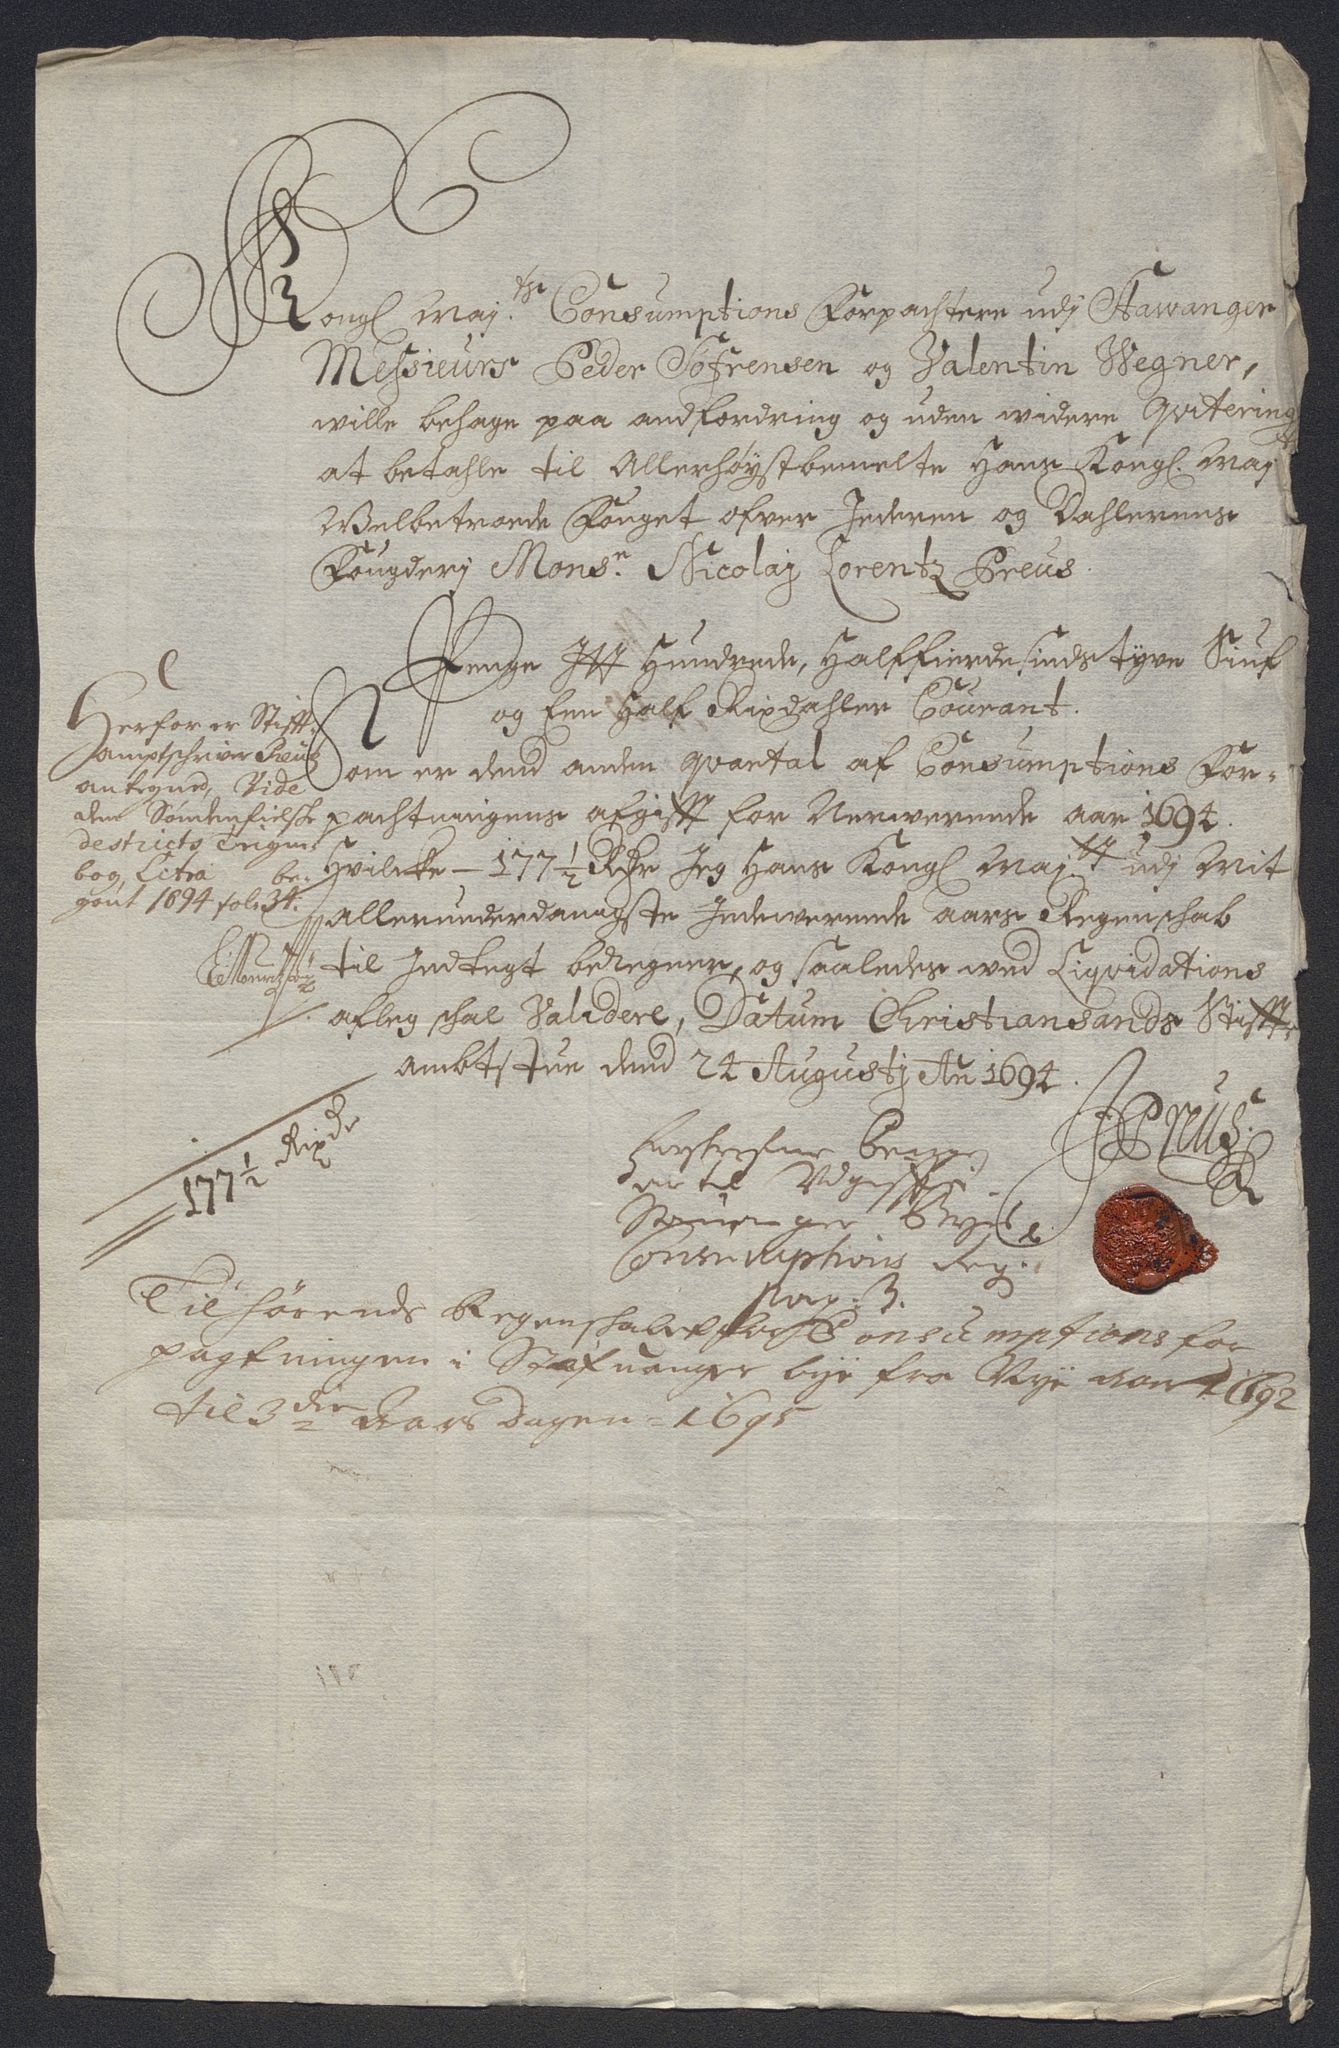 Kongl Maj.ts Consumptions Forpachtere udj Stawanger
Messieurs Peder Söfrensen og Valentin Wegner,
wille behage paa andfordring og uden widere Qvitering
at betahle til Allerhøystbemelte Hans Kongl. Maj
Welbetroede Fouget ofver Jederen og Dahlernes
Fougderj Monsr. Nicolaj Lorentz Preus.
Penge Itt Hundrede, Halffierdesindstyve Siuf
og Een Half Rixdahler Courant.
Som er dend anden Qvartal af Consumptions For-
pachtningens afgifft for Nerwerende aar 1694.
Hvilcke - 177 1/2 Rdr Jeg Hans Kongl Maj.tt udj Mit
allerunderdanigste Indewerende aars Regenschab
til Indtegt beregner, og saaledes wed Liqvidations
afleg schal Validere, Datum Christiansands Stiffts
ambtstue dend 24 Augustij An 1694.
Preus.
Herfor er Stifft-
amptschriver Preus
antegned, Vide
den Søndenfielske
destricts
bog Litra be-
gönt 1694 fol: 34:
177 1/2 Rixdr
forskrefne Penge
er til Udgifft i
Stawanger Byes
Consumptions Reg:
pag: 3.
Til hörends Regenschabet for Consumptions for
pagtningen i Stafuanger bye fra Nye aar 1692
til 3die Aars dagen = 1695